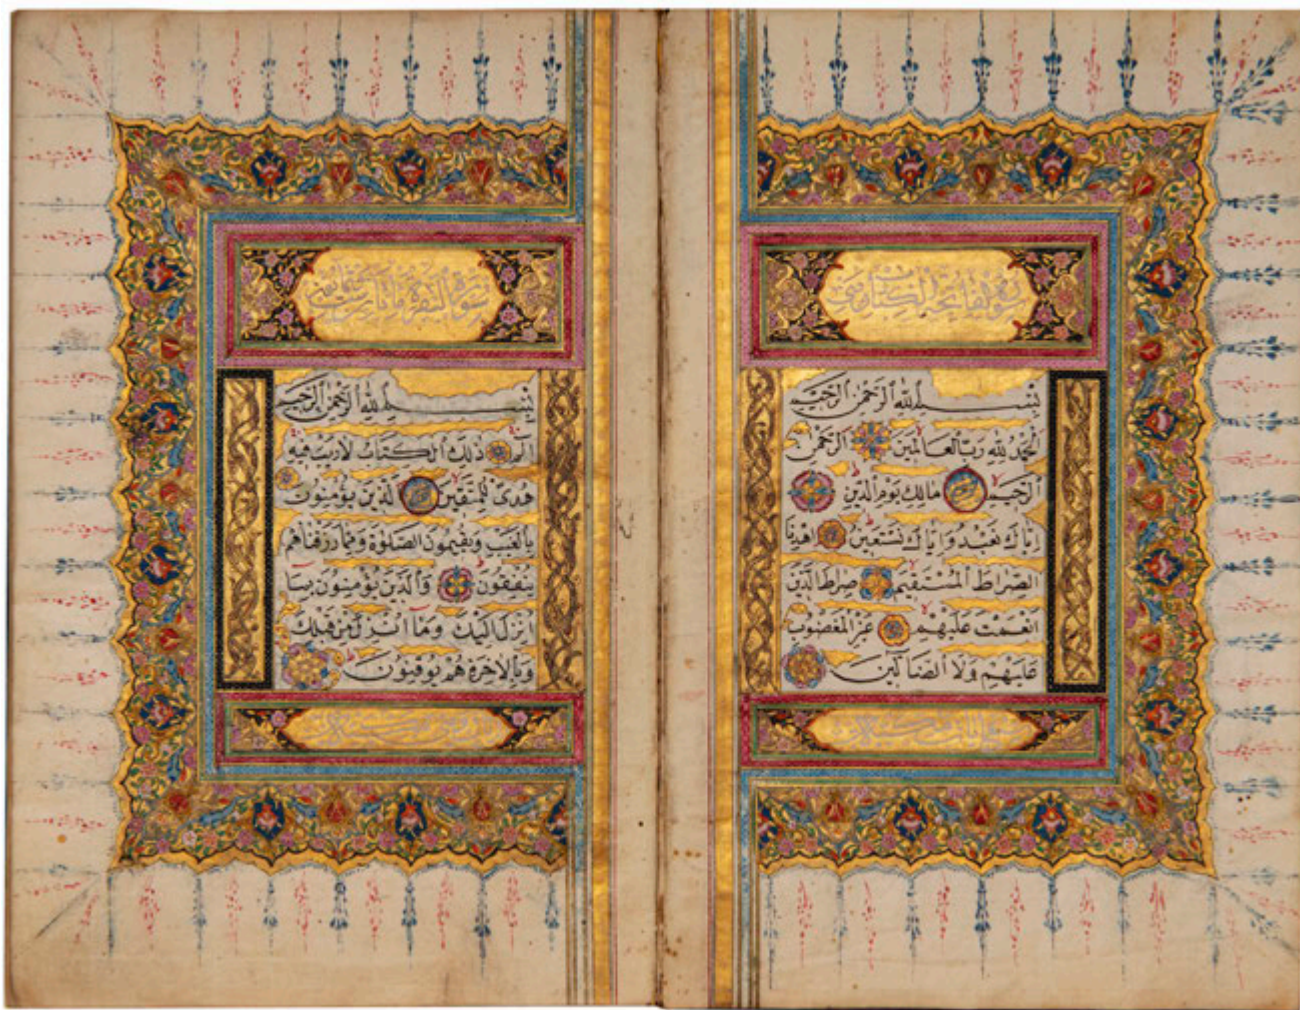 سورة فاتحة الكتاب
بسم الله الرحمن الرحيم
الحمد لله رب العالمين الرحمن
الرحيم مالك يوم الدين
اياك نعبد واياك نستعين اهدنا
الصراط المستقيم صراط الذين
انعمت عليهم غير المغضوب
عليهم ولا الضالين
سورة البقرة مائتا
بسم الله الرحمن الرحيم
الم ذلك الكتاب لا ريب فيه
هدى للمتقين الذين يؤمنون
بالغيب ويقيمون الصلوة ومما رزقناهم
ينفقون والذين يؤمنون بما
انزل اليك وما انزل من قبلك
وبالاخرة هم يوقنون